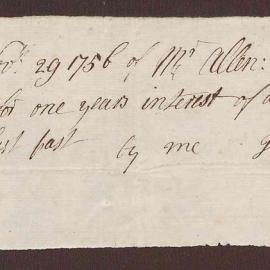 29 1756 of Mr Allen:
for one years interest of a
last past by me